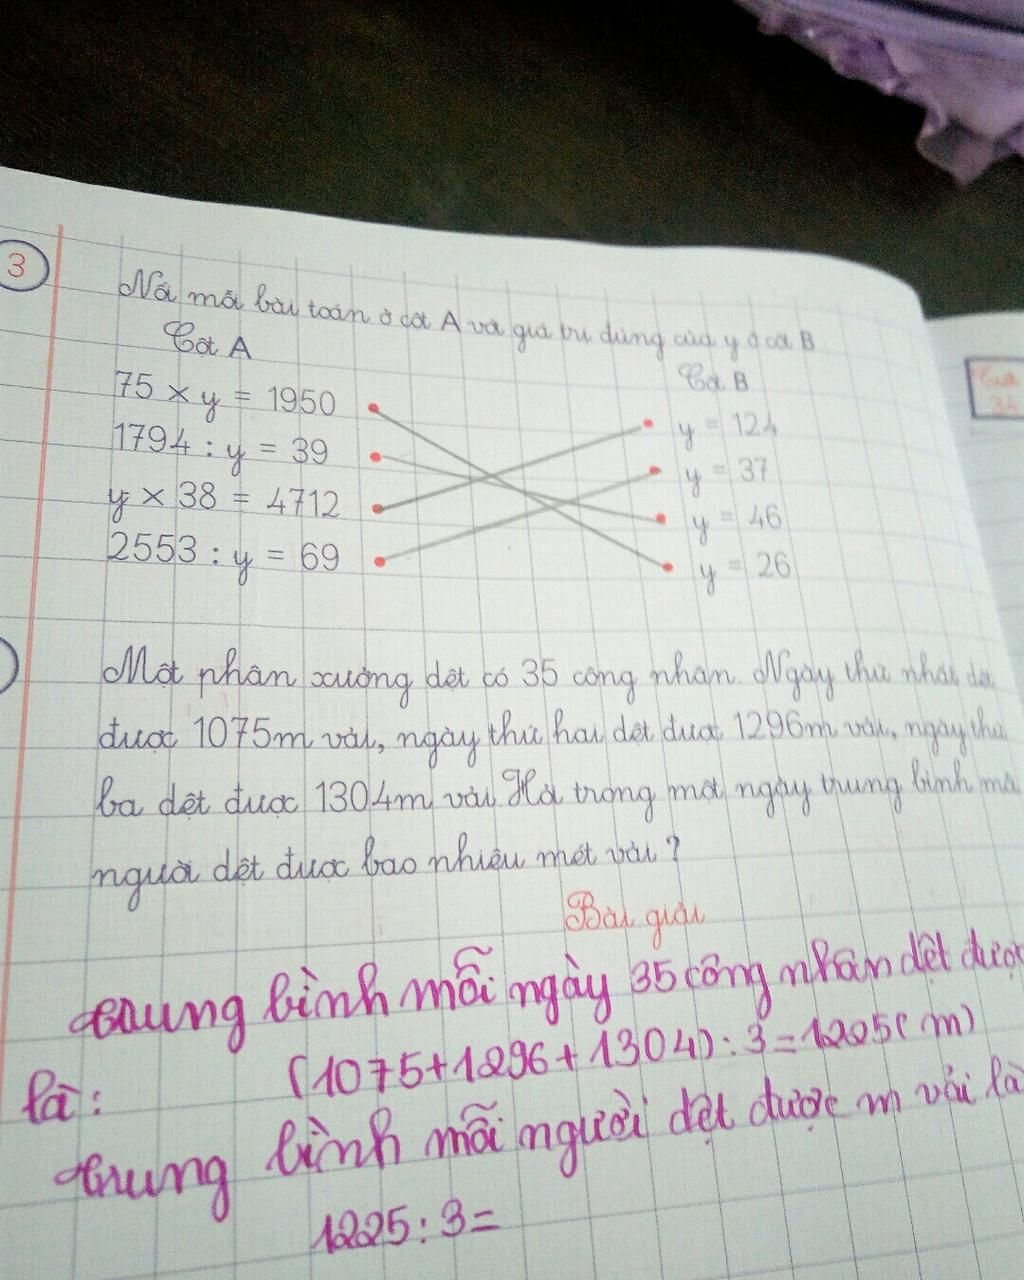 3
Nối mỗi bài toán ở cột A với giá trị đúng của y ở cột B
Cột A
Cột B
75 × y = 1950
y = 124
1794 : y = 39
y = 37
y × 38 = 4712
y = 46
2553 : y = 69
y = 26
Một phân xưởng dệt có 35 công nhân. Ngày thứ nhất dệt
được 1075m vải, ngày thứ hai dệt được 1296m vải, ngày thứ
ba dệt được 1304m vải. Hỏi trong một ngày trung bình mỗi
người dệt được bao nhiêu mét vải ?
Bài giải
trung bình mỗi ngày 35 công nhân dệt được
là : (1075+1296+1304) : 3 = 1225( m)
trung bình mỗi người dệt được m vải là
1225 : 3 =